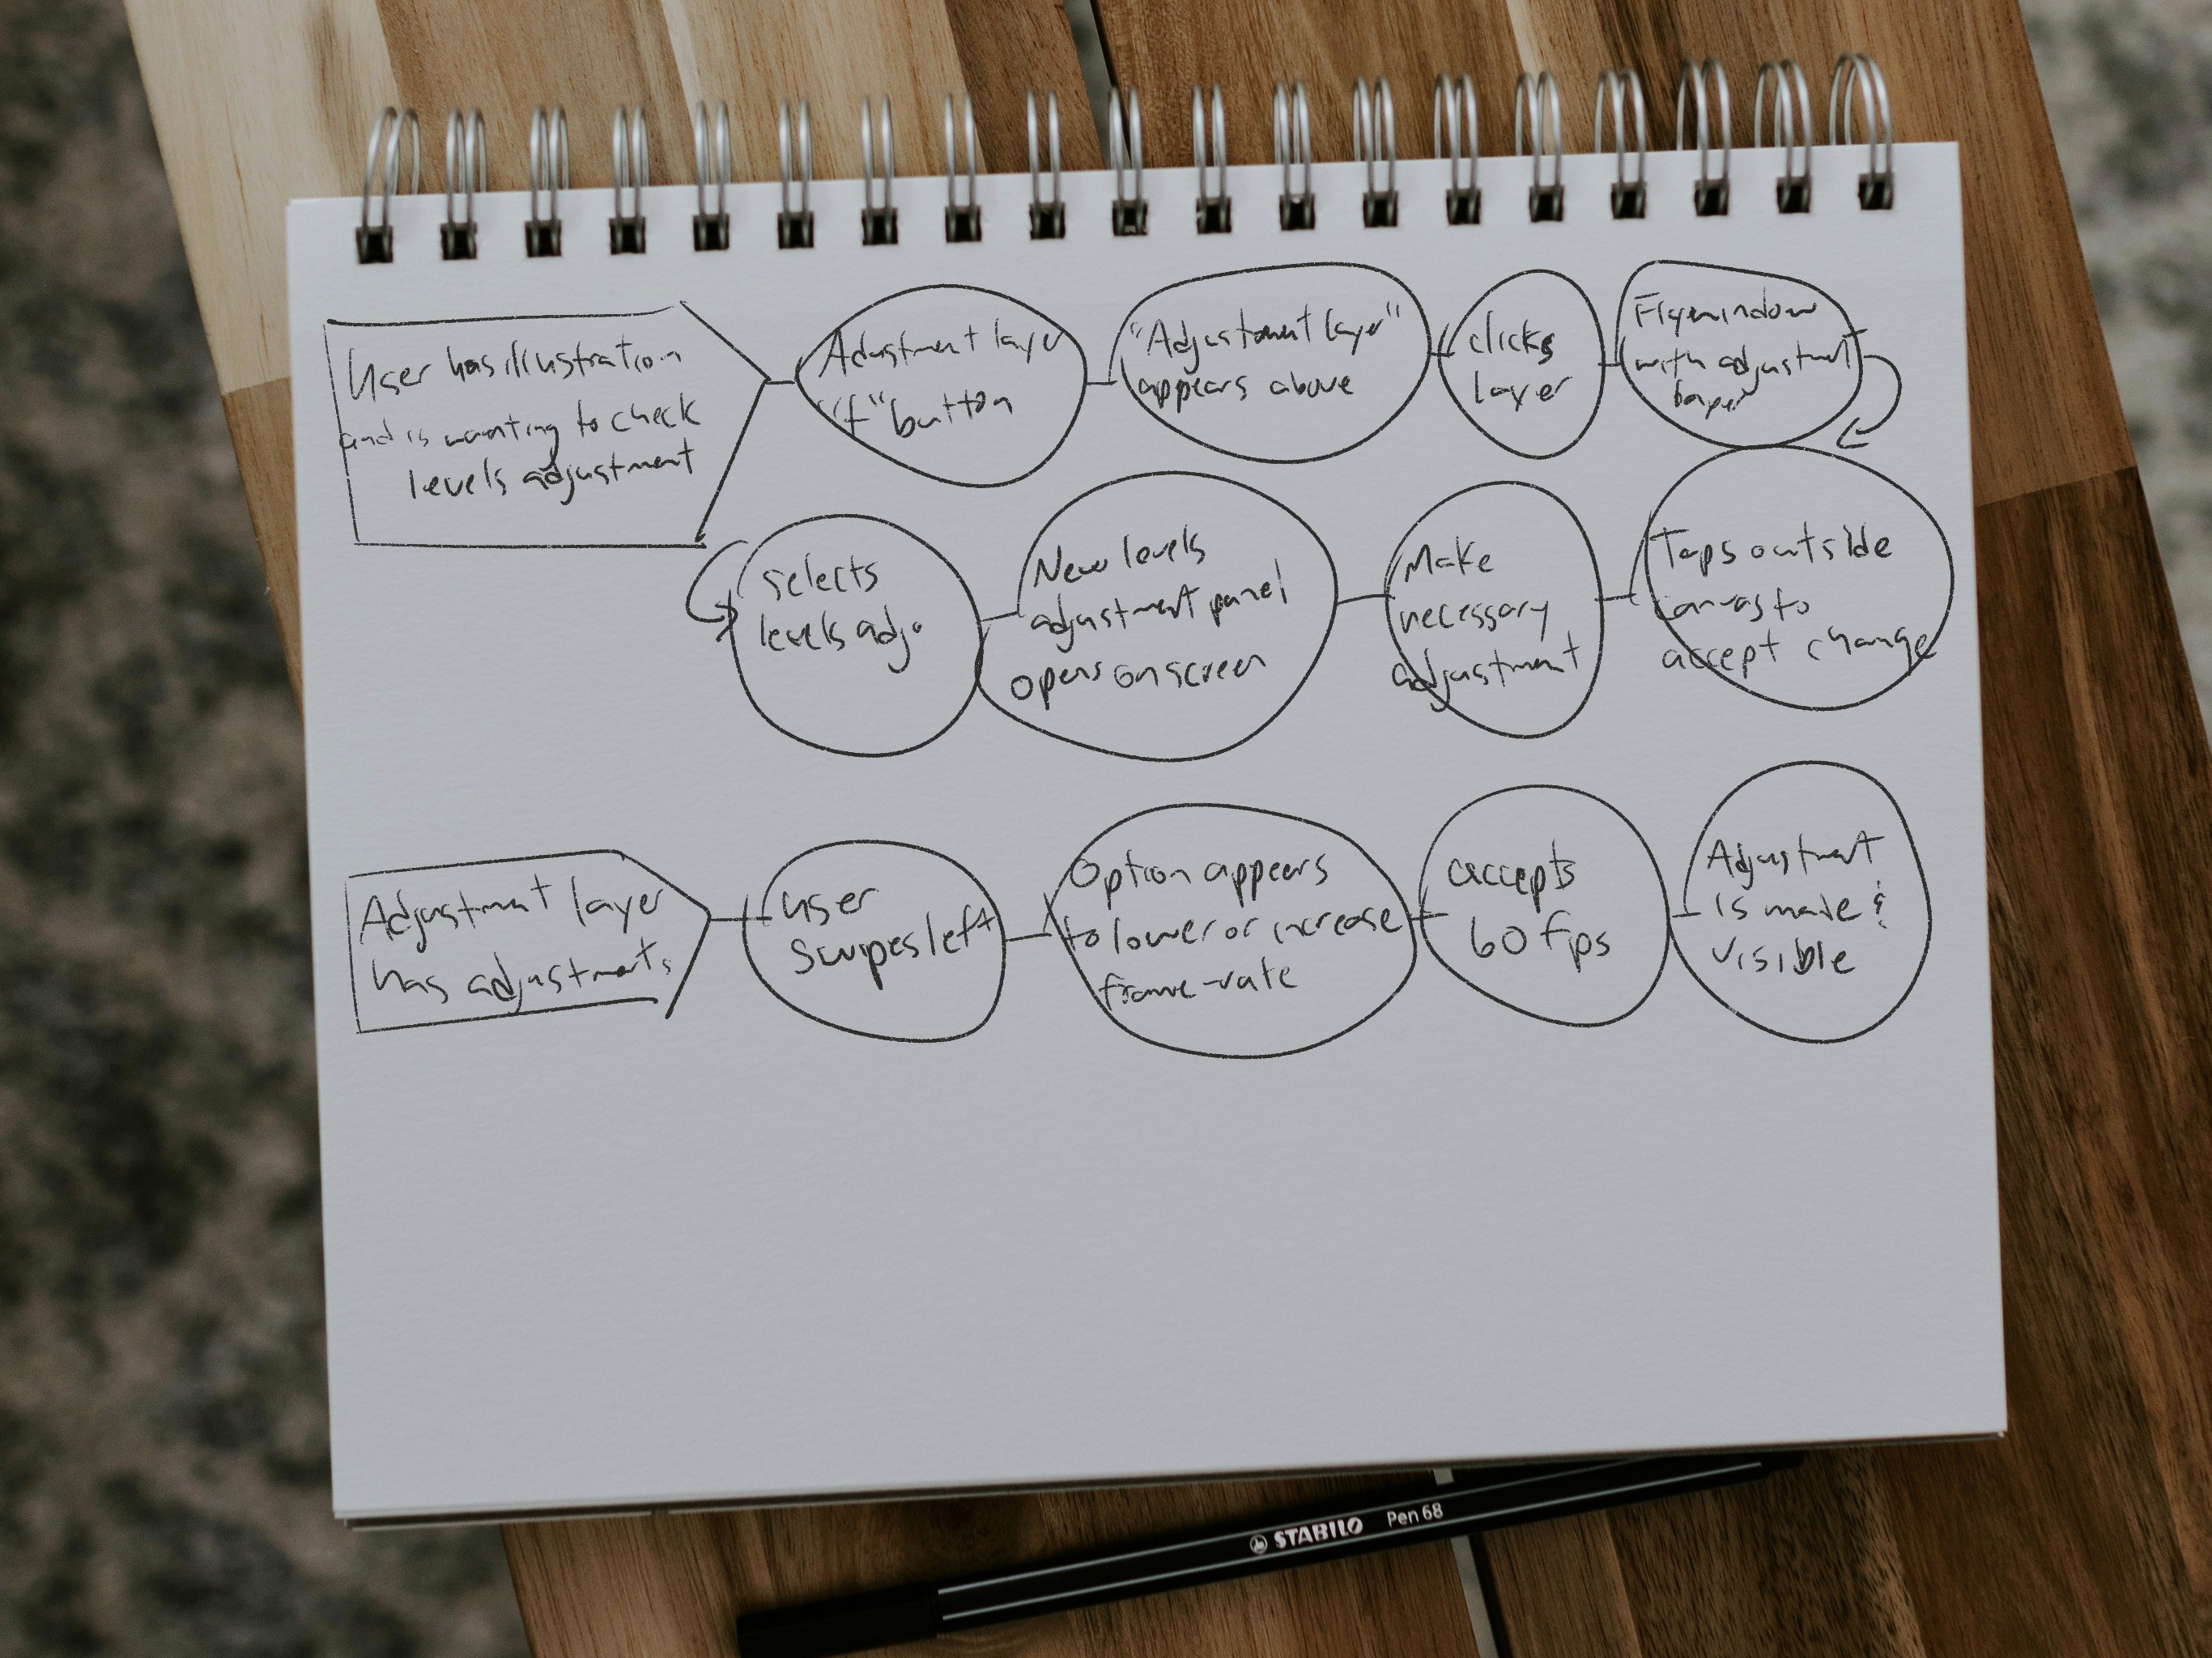 User has illustration
and is wanting to check
levels adjustment
Adustment layer
"f" button
"Adjustment layer"
appears above
clicks
layer
with adjustment
selects
levels adj.
New levels
adjustment panel
opens on screen
Make
necessary
adjustment
Taps outside
canvas to
accept change
Adjustment layer
has adjustments
user
swipes left
Option appears
to lower or increase
frame-rate
accepts
60 fps
Adjustment
is made &
visible
STABILO Pen 68